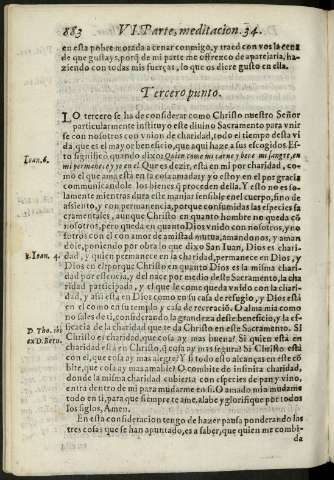 883 VI. Parte, meditacion. 34.
en esta pobre morada a cenar conmigo, y traed con vos la cena
de que gustays, porq̃ de mi parte me ofrezco de aparejarla, ha-
ziendo con todas mis fuerças, lo que os diere gusto en ella.
Tercero punto.
LO tercero se ha de considerar como Christo nuestro Señor
particularmente instituyo este diuino Sacramento para vnir
se con nosotros con vnion de charidad, todo el tiempo desta vi
da, que es el mayor beneficio, que aqui haze a sus escogidos. Es-
to significò quando dixo: Quien come mi carne y beue mi sangre, en
mi permanece, y yo en el. Que es dezir, està en mi por charidad, co-
mo el que ama està en la cosa amada: y yo estoy en el por gracia
communicandole los bienes q̃ proceden della. Y esto no es so-
lamente mientras dura este manjar sensible en el cuerpo, sino de
assiento, y con permanencia, porque consumidas las especies sa
cramentales, aunque Christo en quanto hombre no queda cõ
nosotros, pero queda en quanto Dios vnido con nosotros, y no
sotros con el con amor de amistad mutua, amandonos, y aman
dole, poniendo por obra lo que dixo San Iuan, Dios es chari-
dad, y quien permanece en la charidad, permanece en Dios, y
Dios en el: porque Christo en quanto Dios es la misma chari-
dad por essencia, y del nace por medio deste Sacramento, la cha
ridad participada, y el que le come queda vnido con la charidad,
y assi està en Dios como en su casa de refugio, y Dios està
en el como en su templo y casa de recreaciõ. O alma mia como
no sales de ti, considerando la grandeza deste beneficio, y la ef-
ficacia de la charidad que te da Christo en este Sacramento. Si
Christo es charidad, que cosa ay mas buena? Si quien està en
charidad està en Christo, q̃ cosa ay mas segura? Si Christo està
con el, que cosa ay mas alegre? Y si todo esto alcanças en este cõ
bite, que cosa ay mas amable? O combite de infinita charidad,
donde la misma charidad cubierta con especies de pan y vino,
entra dentro de mi para mudarme en si. O amado mio mudame
todo en ti, para que siempre te ame, alabe y glorifique por todos
los siglos, Amen.
En esta consideracion tengo de hazer pausa ponderando las
tres cosas que se han apuntado, es a saber, que quien me combi-
da
Ioan. 6.
1. Ioan. 4.